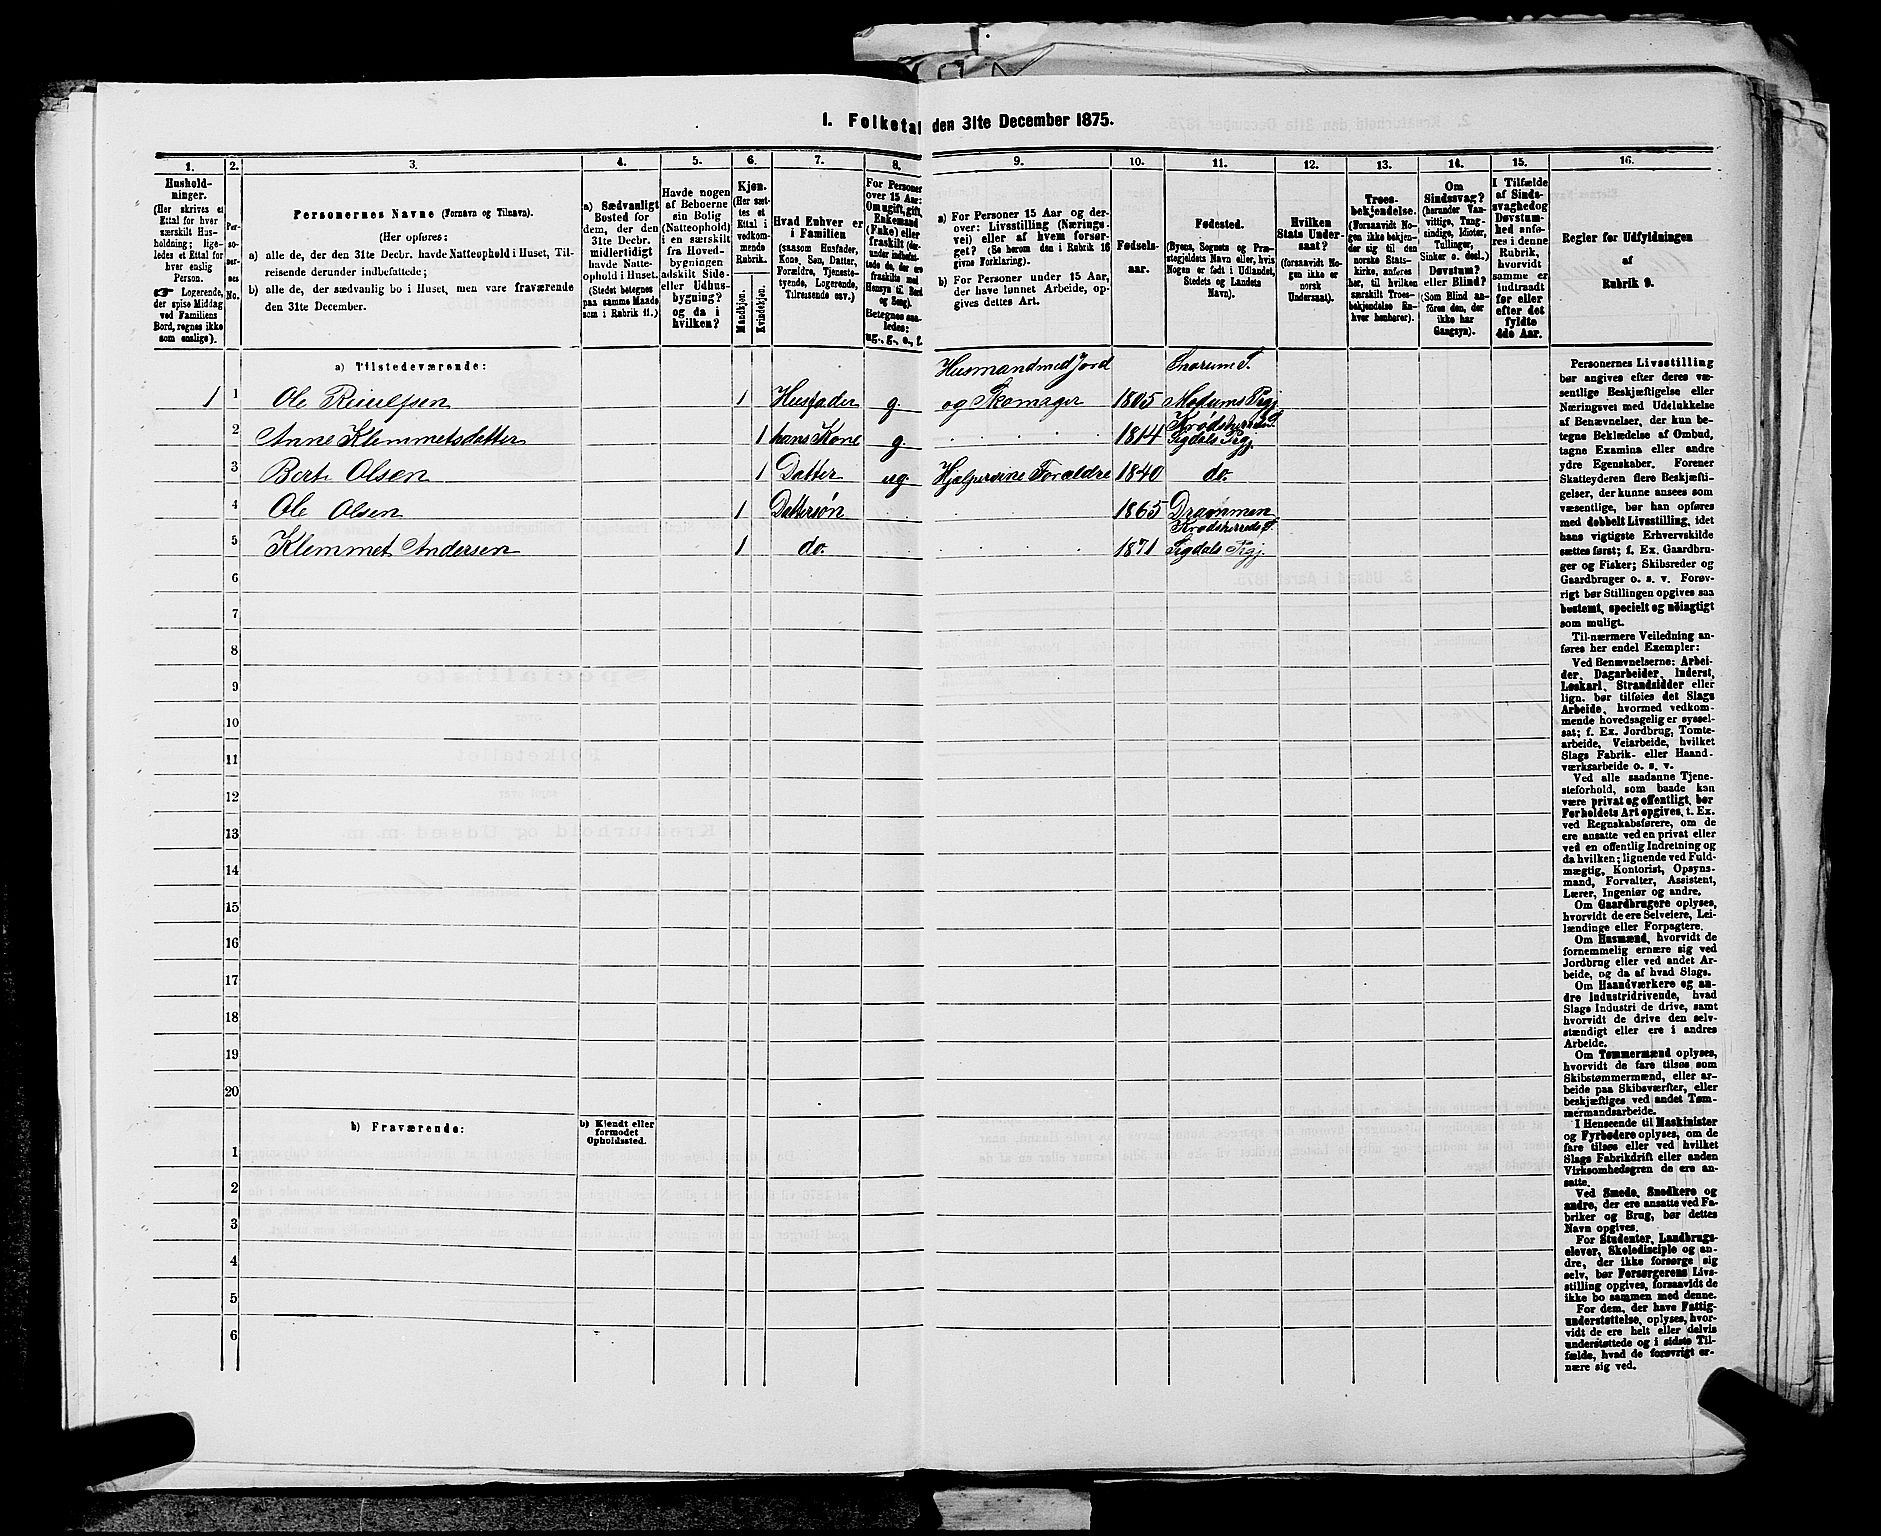 I. Folketal den 31te December 1875.
1. 2. 3. 4. 5. 6. 7. 8. 9. 10. 11. 12. 13. 14. 15. 16.
Hushold-
ninger.
(Her skrives et
Ettal for hver
særskilt Hus-
holdning; lige-
ledes et Ettal for
hver enslig
Person.
☞ Logerende,
der spise Middag
ved Familiens
Bord, regnes ikke
som enslige).
Per-
so-
ner-
nes
No.
Personernes Navne (Fornavn og Tilnavn).
(Her opføres:
a) alle de, der den 31te Decbr. havde Natteophold i Huset, Til-
reisende derunder indbefattede;
b) alle de, der sædvanlig bo i Huset, men vare fraværende
den 31te December.
a) Sædvanligt
Bosted for
dem, der den
31te Decbr.
midlertidigt
havde Natte-
ophold i Huset.
(Stedet betegnes
paa samme Maade
som i Rubrik 11.)
Havde nogen
af Beboerne
sin Bolig
(Natteophold)
i en særskilt
fra Hoved-
bygningen
adskilt Side-
eller Udhus-
bygning?
og da i
hvilken?
Kjøn.
(Her sæt-
tes et
Ettal i
vedkom-
mende
Rubrik.
Mandkjøn.
Kvindekjøn.
Hvad Enhver er
i Familien
(saasom Husfader,
Kone, Søn, Datter,
Forældre, Tjeneste-
tyende, Logerende,
Tilreisende osv.)
For Personer
over 15 Aar:
Om ugift, gift,
Enkemand
(Enke) eller
fraskilt (der-
under indbefat-
tede de, der ere
fraskilte med
Hensyn til Bord
og Seng).
Betegnes saa-
ledes:
ug., g., e., f.
a) For Personer 15 Aar og der-
over: Livsstilling (Nærings-
vei) eller af hvem forsør-
get? (Se herom den i Rubrik 16
givne Forklaring).
b) For Personer under 15 Aar,
der have lønnet Arbeide, op-
gives dettes Art.
Fødsels-
aar.
Fødested.
(Byens, Sognets og Præ-
stegjeldets Navn eller, hvis
Nogen er født i Udlandet,
Stedets og Landets
Navn).
Hvilken
Stats Under-
saat?
(forsaavidt No-
gen ikke er
norsk
Undersaat).
Troes-
bekjendelse.
(Forsaavidt No-
gen ikke bekjen-
der sig til den
norske Stats-
kirke, anføres
her, til hvilken
særskilt Troes-
bekjendelse En-
hver henhører).
Om
Sindssvag?
(herunder Van-
vittige, Tung-
sindige, Idioter,
Tullinger,
Sinker o. desl.)
Døvstum?
eller Blind?
(Som Blind an-
føres den, der
ikke har
Gangsyn).
I Tilfælde
af Sinds-
svaghed og
Døvstum-
hed anfø-
res i denne
Rubrik,
hvorvidt
samme er
indtraadt
før eller
efter det
fyldte
4de Aar.
Regler for Udfyldningen
af
Rubrik 9.
a) Tilstedeværende:
Husmand med Jord Snarum S.
1 1 Ole 1 Husfader g. og Skomager 1805 Modums Prgj.
Krødsherreds S.
2 Anne Klemmetsdatter 1 hans Kone g 1814 Sigdals Prgj.
3 Berte Olsen 1 Datter ug. Hjælper sine Forældre 1840 do.
4 Ole Olsen 1 Dattersøn 1865 Drammen
Krødsherreds S.
5 Klemmet Andersen 1 do. 1871 Sigdals Prgj.
6
7
8
9
10
11
12
13
14
15
16
17
18
19
20
b) Fraværende:
b) Kjendt eller
formodet
Opholdssted.
1
2
3
4
5
6
Personernes Livsstilling
bør angives efter deres væ-
sentlige Beskjæftigelse eller
Næringsvei med Udelukkelse
af Benævnelser, der kun be-
tegne Beklædelse af Ombud,
tagne Examina eller andre
ydre Egenskaber. Forener
Skatteyderen flere Beskjæfti-
gelser, der kunne ansees som
væsentlige, bør han opføres
med dobbelt Livsstilling, idet
hans vigtigste Erhvervskilde
sættes først; f. Ex. Gaardbru-
ger og Fisker; Skibsreder og
Gaardbruger o. s. v. Forøv-
rigt bør Stillingen opgives saa
bestemt, specielt og nöiagtigt
som muligt.
Til-nærmere Veiledning an-
føres her endel Exempler:
Ved Benævnelserne: Arbei-
der, Dagarbeider, Inderst,
Løskarl, Strandsidder eller
lign. bør tilføies det Slags
Arbeide, hvormed vedkom-
mende hovedsagelig er syssel-
sat; f. Ex. Jordbrug, Tomte-
arbeide, Veiarbeide, hvilket
Slags Fabrik- eller Haand-
værksarbeide o. s. v.
Ved alle saadanne Tjene-
steforhold, som baade kan
være privat og offentligt, bør
Forholdets Art opgives, t. Ex.
ved Regnskabsførere, om de
ere ansatte ved en privat eller
ved en offentlig Indretning og
da hvilken; lignende ved Fuld-
mægtig, Kontorist, Opsyns-
mand, Forvalter, Assistent,
Lærer, Ingeniør og andre.
Om Gaardbrugere oplyses,
hvorvidt de ere Selveiere, Lei-
lændinge eller Forpagtere.
Om Husmænd, hvorvidt de
fornemmelig ernære sig ved
Jordbrug eller ved andet Ar-
beide, og da af hvad Slags.
Om Haandværkere og an-
dre Industridrivende, hvad
Slags Industri de drive, samt
hvorvidt de drive den selv-
stændigt eller ere i andres
Arbeide.
Om Tømmermænd oplyses,
hvorvidt de fare tilsøs som
Skibstømmermænd, eller ar-
beide paa Skibsværfter, eller
beskjæftiges ved andet Tøm-
mermandsarbeide.
I Henseende til Maskinister
og Fyrbødere oplyses, om de
fare tilsøs eller ved hvilket
Slags Fabrikdrift eller anden
Virksomhedsgren de ere an-
satte.
Ved Smede, Snedkere og
andre, der ere ansatte ved Fa-
briker og Brug, bør dettes
Navn opgives.
For Studenter, Landbrugs-
elever, Skoledisciple og an-
dre, der ikke forsørge sig
selv, bør Forsørgerens Livs-
stilling opgives, forsaavidt de
ikke bo sammen med denne.
For dem, der have Fattig-
understøttelse, oplyses, hvor-
vidt de ere helt eller delvis
understøttede og i sidste Til-
fælde, hvad de forøvrigt er-
nære sig ved.